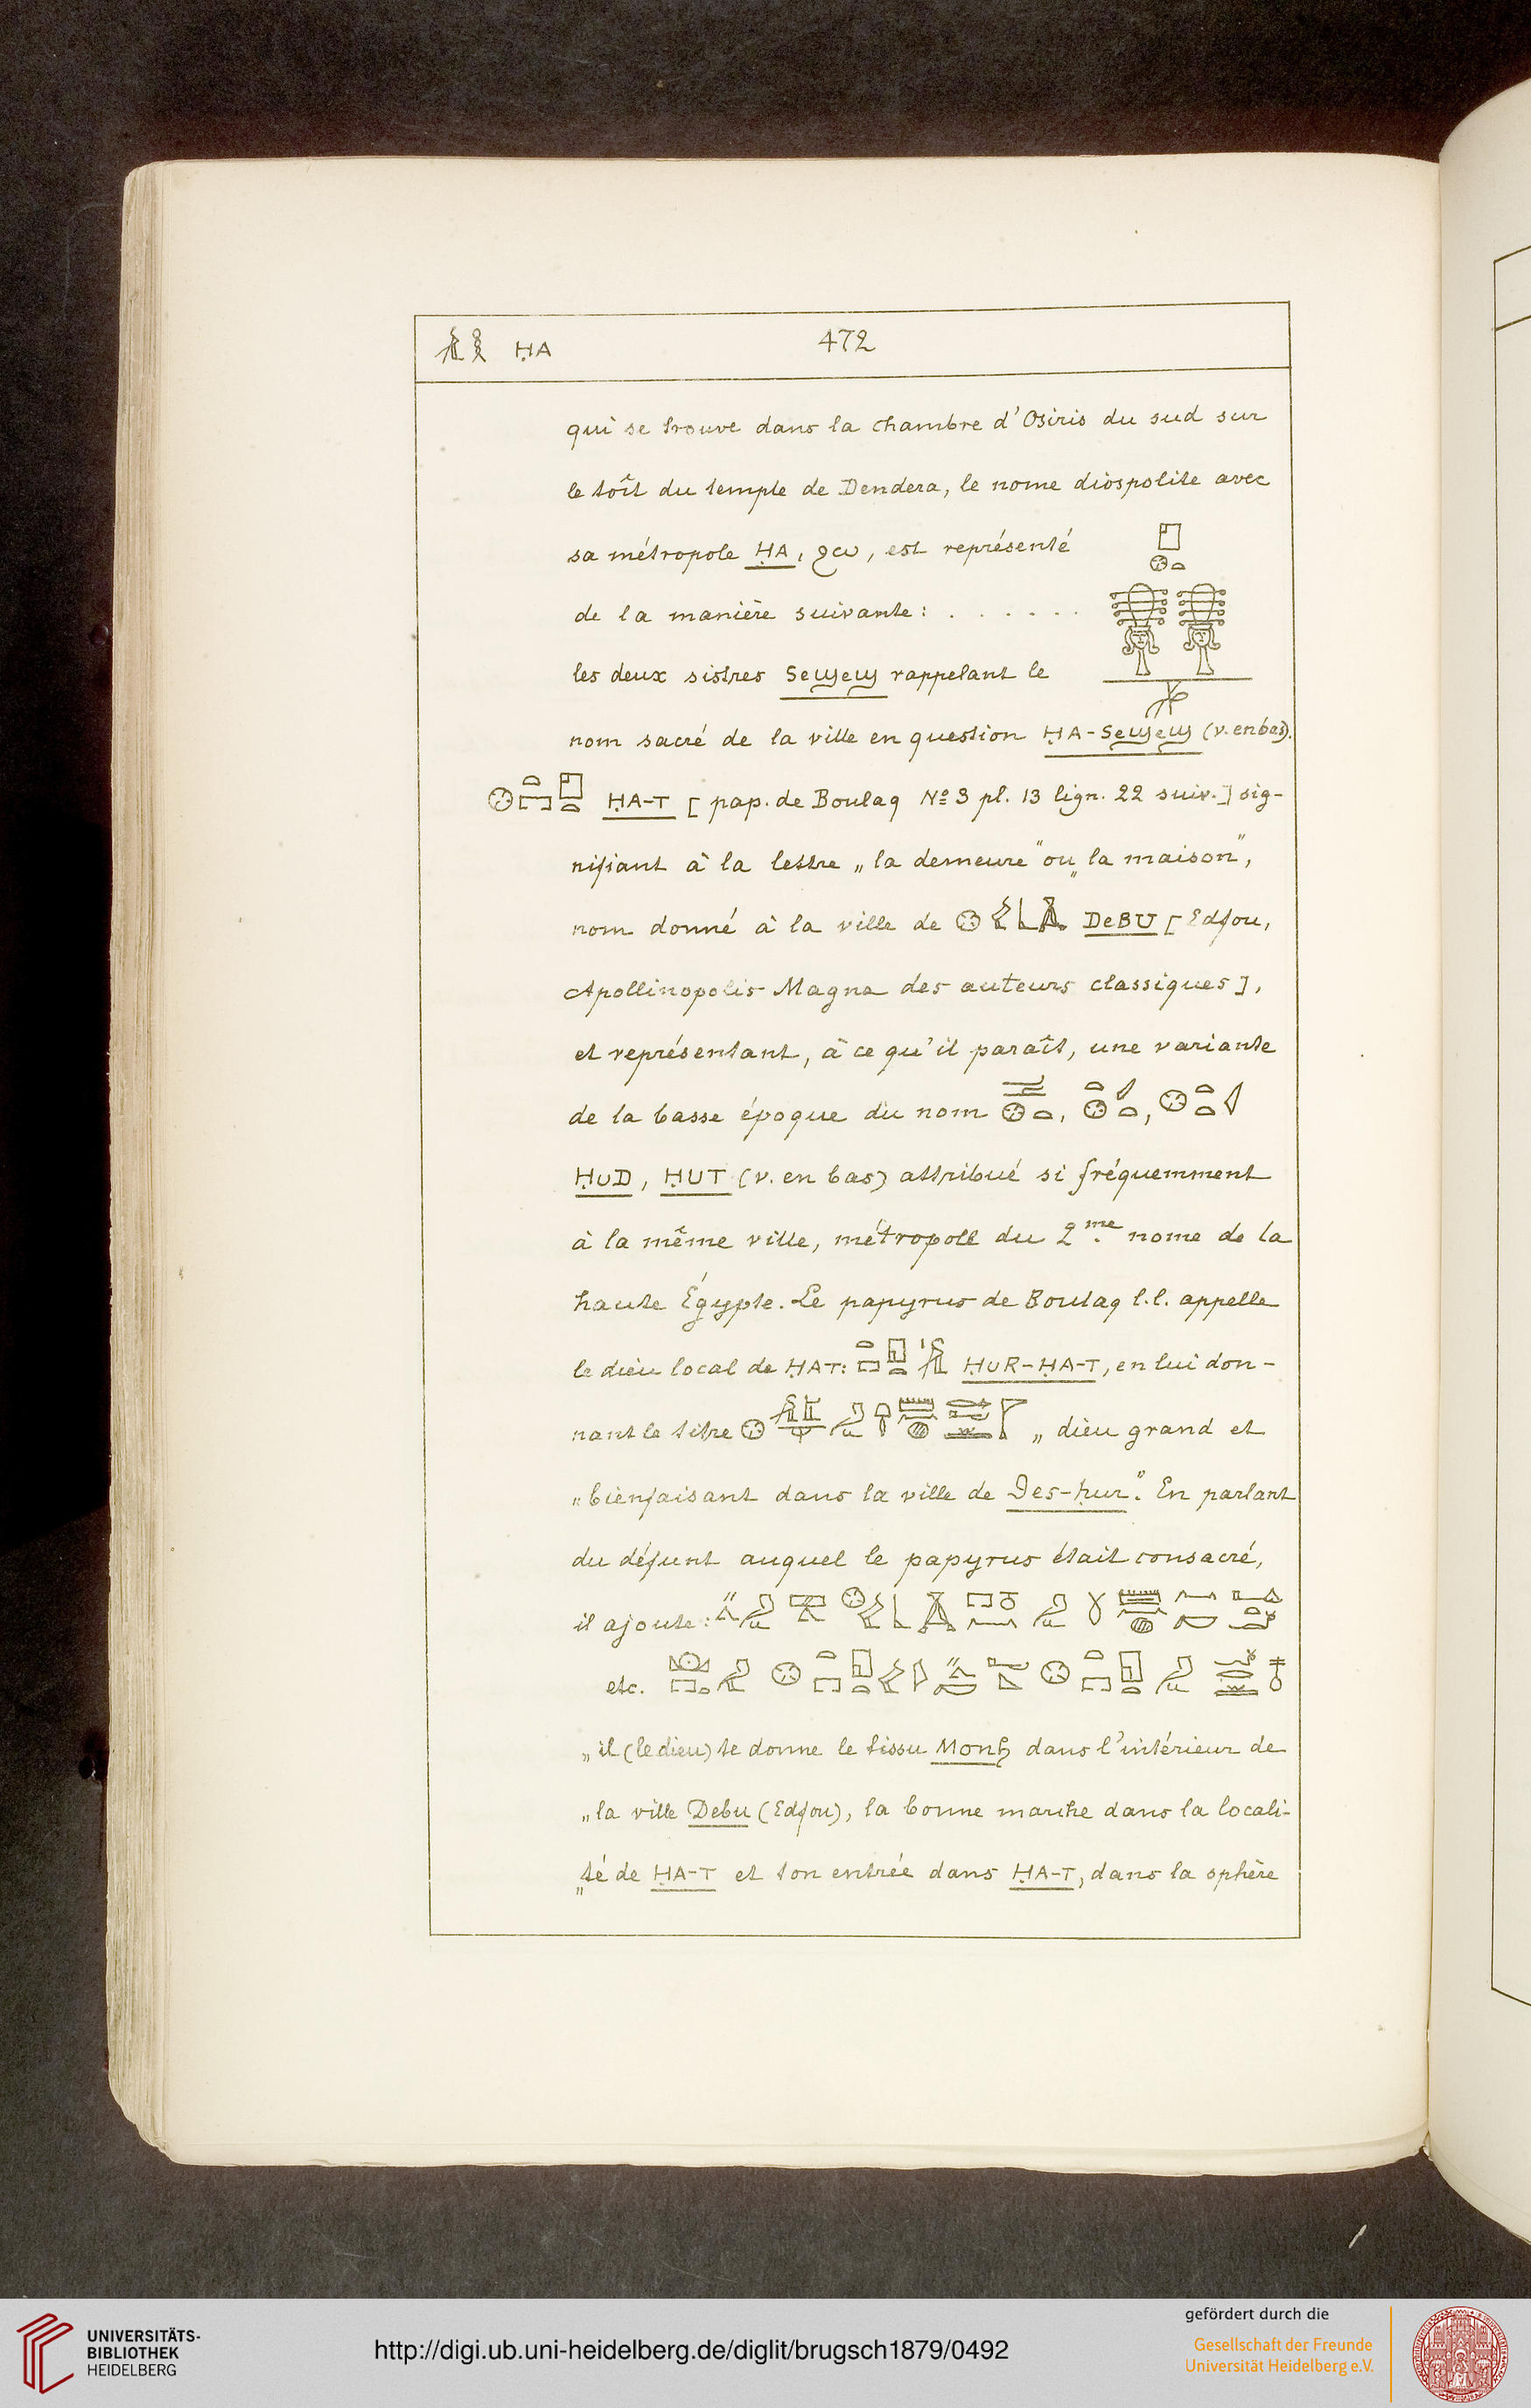 ḤA 472
qui se trouve dans la chambre d'Osiris du sud sur
le toît du temple de Dendera, le nome diospolite avec
sa métropole ḤA, ϩⲱ, est représenté
de la manière suivante: . . . . . .
les deux sistres Seϣeϣ rappelant le
nom sacré de la ville en question ḤA-Seϣeϣ (v. en bas).
ḤA-T [pap. de Boulaq Nº 3 pl. 13 lign. 22 suiv.] sig-
nifiant à la lettre „la demeure" ou „la maison",
nom donné à la ville de DeBU [Edfou,
Apollinopolis Magna des auteurs classiques],
et représentant, à ce qu'il paraît, une variante
de la basse époque du nom , ,
ḤUD, ḤUT (v. en bas) attribué si fréquemment
à la même ville, métropole du 2me nome de la
haute Égypte. Le papyrus de Boulaq l.l. appelle
le dieu local de ḤAT: ḤUR-ḤA-T, en lui don-
nant le titre „dieu grand et
„bienfaisant dans la ville de Des-ḥur". En parlant
du défunt auquel le papyrus était consacré,
il ajoute:
etc.
„il (le dieu) te donne le tissu Monϧ dans l'intérieur de
„la ville Debu (Edfou), la bonne marche dans la locali-
„té de ḤA-T et ton entrée dans ḤA-T, dans la sphère
UNIVERSITÄTS-
BIBLIOTHEK
HEIDELBERG
http://digi.ub.uni-heidelberg.de/diglit/brugsch1879/0492
gefördert durch die
Gesellschaft der Freunde
Universität Heidelberg e.V.